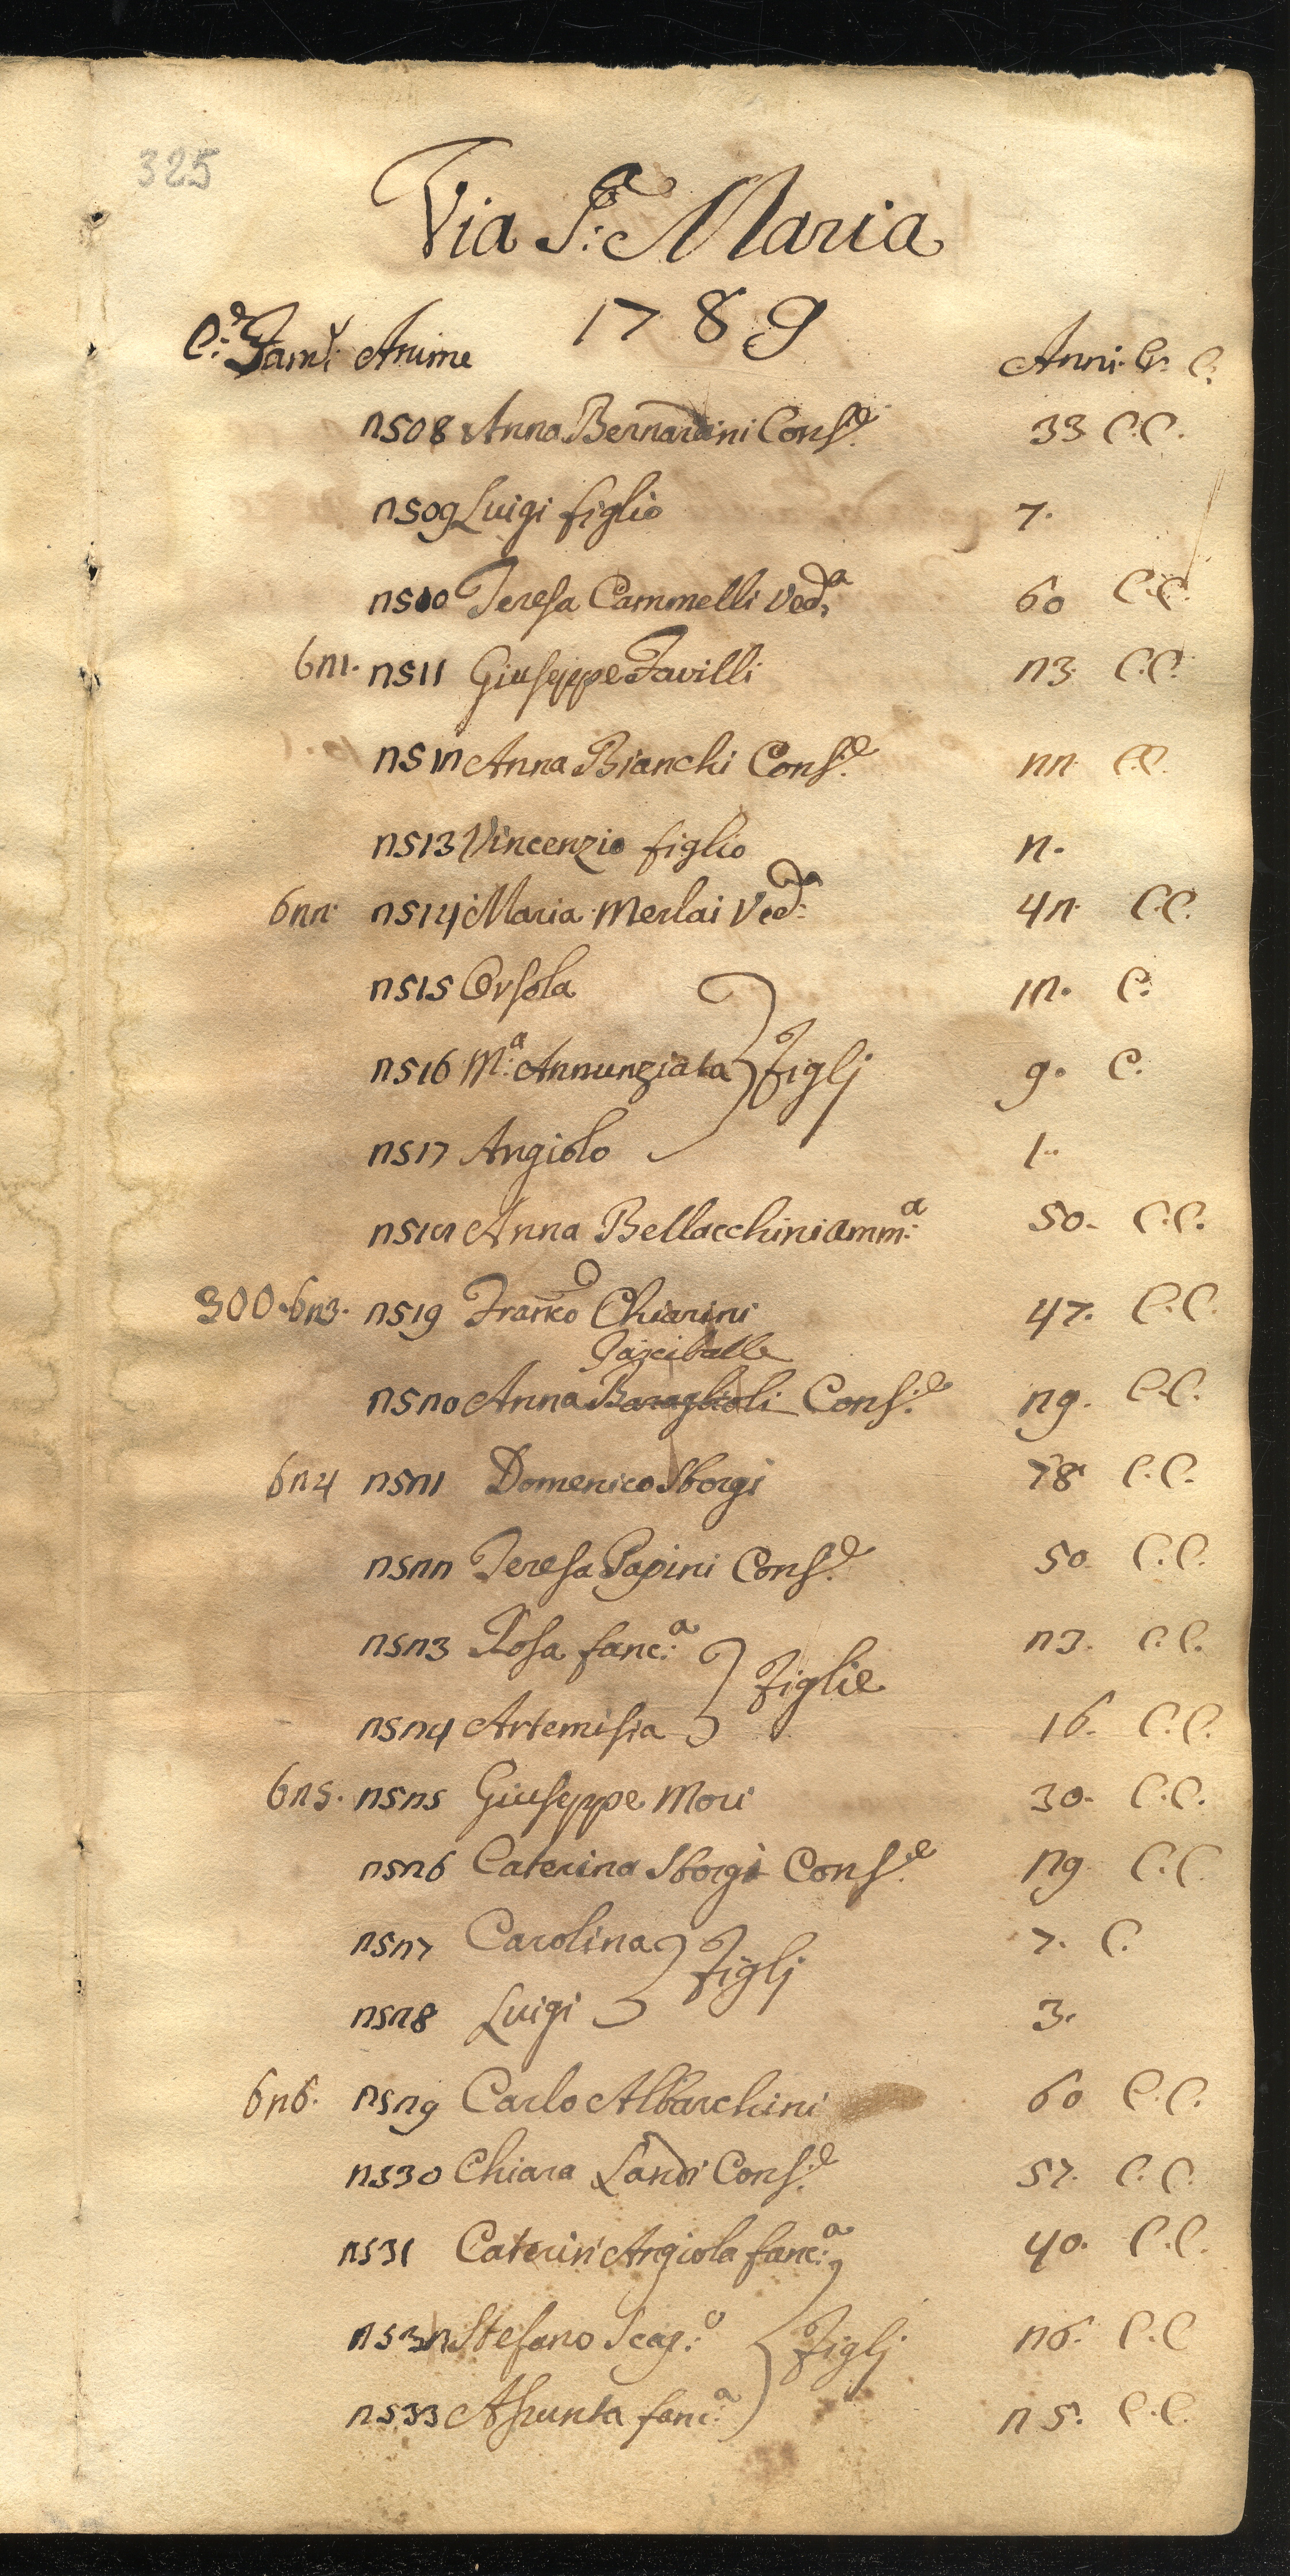 325
Via S.a Maria
1789
C.e Fam.e Anime Anni. Cr. C.
2508 Anna Bernardini Cons.e 33 C.C.
2509 Luigi figlio 7.
2510 Teresa Cammelli Ved.a 60 C.C.
621. 2511 Giuseppe Favilli 23. C.C.
2512 Anna Bianchi Cons.e 22 C.C.
2513 Vincenzio figlio 2.
622. 2514 Maria Merlai Ved.a 42. C.C.
2515 Orsola 12. C.
2516 M.a Annunziata } Figlj 9. C.
2517 Angiolo 1.
2518 Anna Bellacchini amm.a 50. C.C.
300. 623. 2519 Franco Chiarini 47. C.C.
2520 Anna Baraglioli Cons.e 29. C.C.
624 2521 Domenico Sborgi 78 C.C.
2522 Teresa Papini Cons.e 50. C.C.
2523 Rosa fanc.a 23. C.C.
} Figlie
2524 Artemisia 16. C.C.
625. 2525 Giuseppe Mori 30. C.C.
2526 Caterina Sborgi Cons.e 29 C.C.
2527 Carolina 7. C.
} Figlj
2528 Luigi 3.
626. 2529 Carlo Albarchini 60 C.C.
2530 Chiara Landi Cons.e 57. C.C.
2531 Caterin' Angiola fanc.a 40. C.C.
2532 Stefano Scap.o } Figlj 26. C.C
2533 Assunta fanc.a 25. C.C.